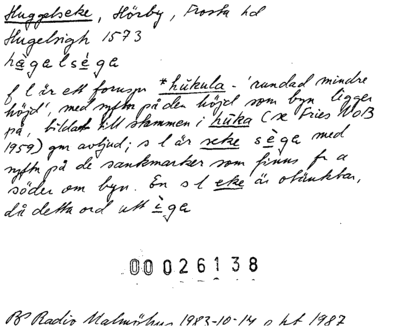 Huggelseke, Hörby, Frosta hd
Hugelsigh 1573
hàgalsèga
f l är ett fornspr *hūkula - 'rundad mindre
höjd', med syftn på den höjd som byn ligger
på, bildat till stammen i hūka (se Fries NoB
1959) gm avljud; s l är seke sèga med
syftn på de sankmarker som finns fr a
söder om byn. En s l eke är otänkbar,
då detta ord utt èga
00026138
Radio Malmöhus 1983-10-14 o kf 1987